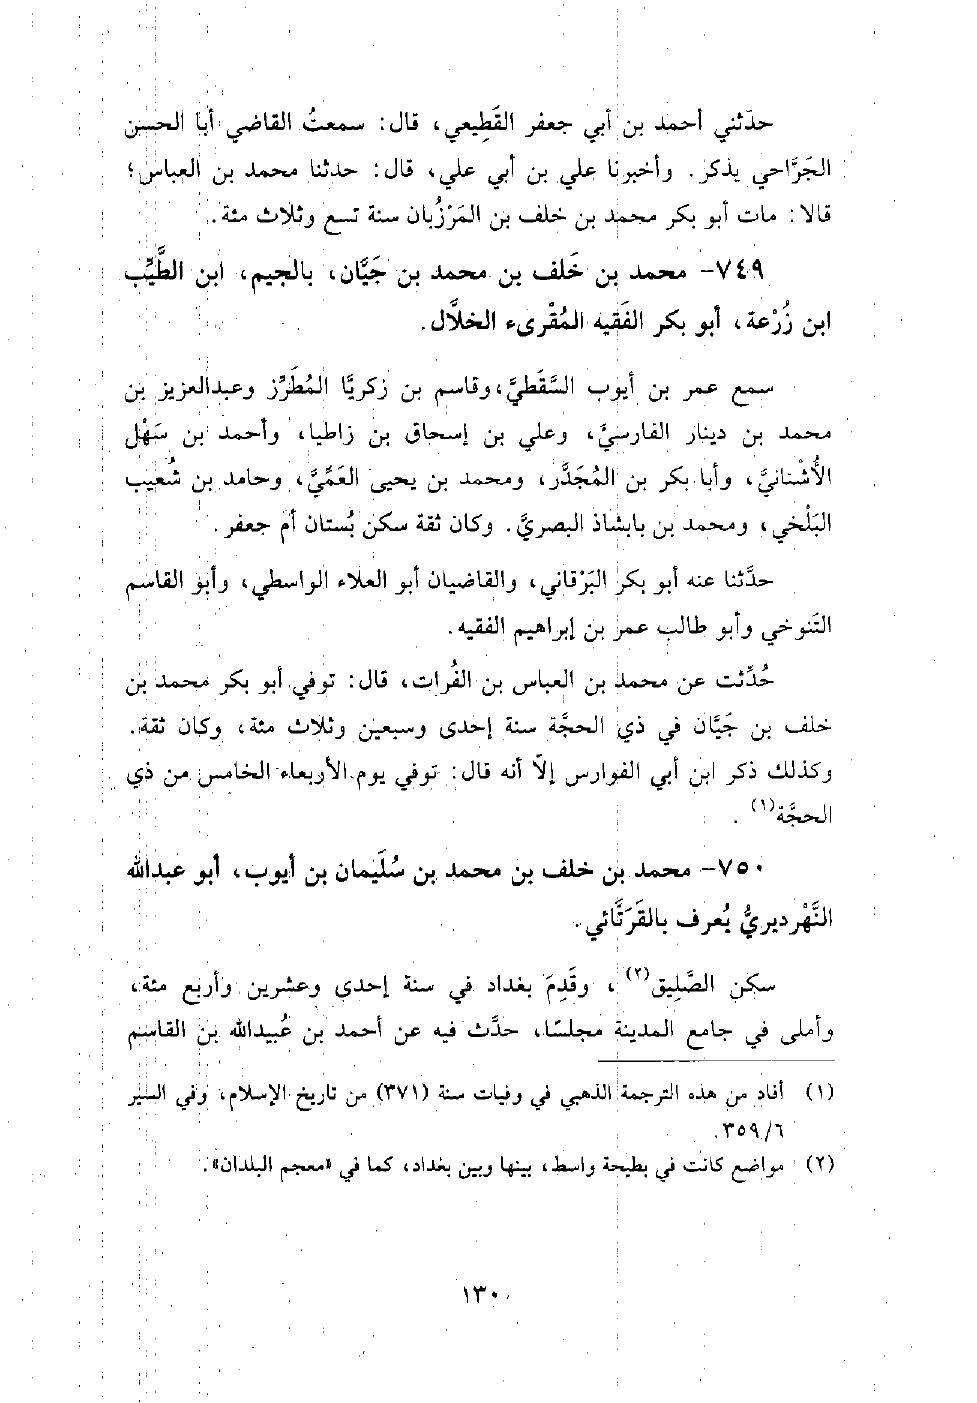 حدّثني أحمد بن أبي جعفر القَطِيعي، قال: سمعتُ القاضي أبا الحسن
الجَرَّاحي يذكر. وأخبرنا علي بن أبي علي، قال: حدثنا محمد بن العباس؛
قالا: مات أبو بكر محمد بن خلف بن المَرْزُبان سنة تسع وثلاث مئة.
٧٤٩- محمد بن خَلف بن محمد بن جَيَّان، بالجيم، ابن الطَّيِّب
ابن زُرْعة، أبو بكر الفَقيه المُقْرىء الخلَّال.
سمع عمر بن أيوب السَّقَطيَّ، وقاسم بن زكريَّا المُطَرِّز وعبدالعزيز بن
محمد بن دينار الفارسيَّ، وعلي بن إسحاق بن زاطيا، وأحمد بن سَهْل
الأُشْنانيَّ، وأبا بكر بن المُجَدَّر، ومحمد بن يحيى العَمِّيَّ، وحامد بن شُعيب
البَلْخي، ومحمد بن بابشاذ البصريَّ. وكان ثقة سكن بُستان أم جعفر.
حدَّثنا عنه أبو بكر البَرْقاني، والقاضيان أبو العلاء الواسطي، وأبو القاسم
التَنوخي وأبو طالب عمر بن إبراهيم الفقيه.
حُدِّثت عن محمد بن العباس بن الفُرات، قال: توفي أبو بكر محمد بن
خلف بن جَيَّان في ذي الحجَّة سنة إحدى وسبعين وثلاث مئة، وكان ثقة.
وكذلك ذكر ابن أبي الفوارس إلّا أنه قال: توفي يوم الأربعاء الخامس من ذي
الحجَّة(١).
٧٥٠- محمد بن خلف بن محمد بن سُلَيمان بن أيوب، أبو عبدالله
النَّهْرديريُّ يُعرف بالقَرَتَّائي.
سكن الصَّلِيق(٢)، وقَدِمَ بغداد في سنة إحدى وعشرين وأربع مئة،
وأملى في جامع المدينة مجلسًا، حدَّث فيه عن أحمد بن عُبيدالله بن القاسم
(١) أفاد من هذه الترجمة الذهبي في وفيات سنة (٣٧١) من تاريخ الإسلام، وفي السير
٦/ ٣٥٩.
(٢) مواضع كانت في بطيحة واسط، بينها وبين بغداد، كما في «معجم البلدان».
١٣٠